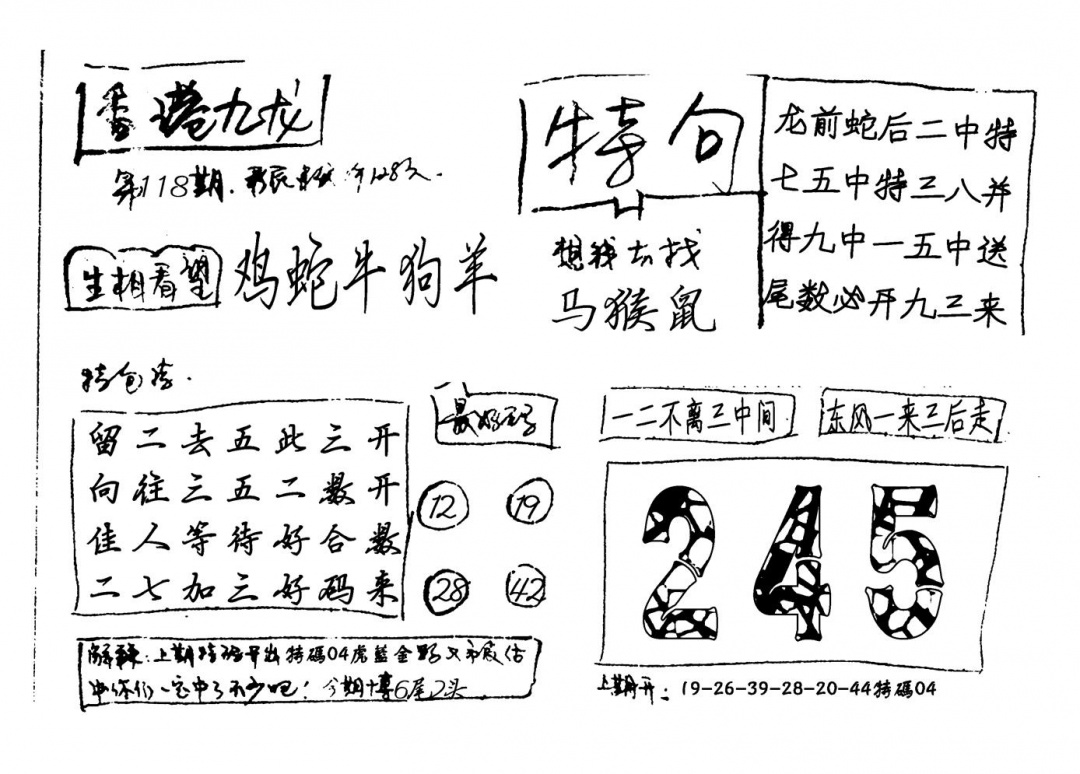 香港九龙
第118期.
生相看望 鸡蛇牛狗羊
特句
想我去找
马猴鼠
龙前蛇后二中特
七五中特三八并
得九中一五中送
尾数必开九三来
留二去五此三开
向往三五二数开
佳人等待好合数
二七加三好码来
12 19
28 42
一二不离三中间
东风一来三后走
245
上期特码开出特碼04虎蓝金野又
中你们一定中了不少吧！今期博6尾2头
上期开：19-26-39-28-20-44特碼04